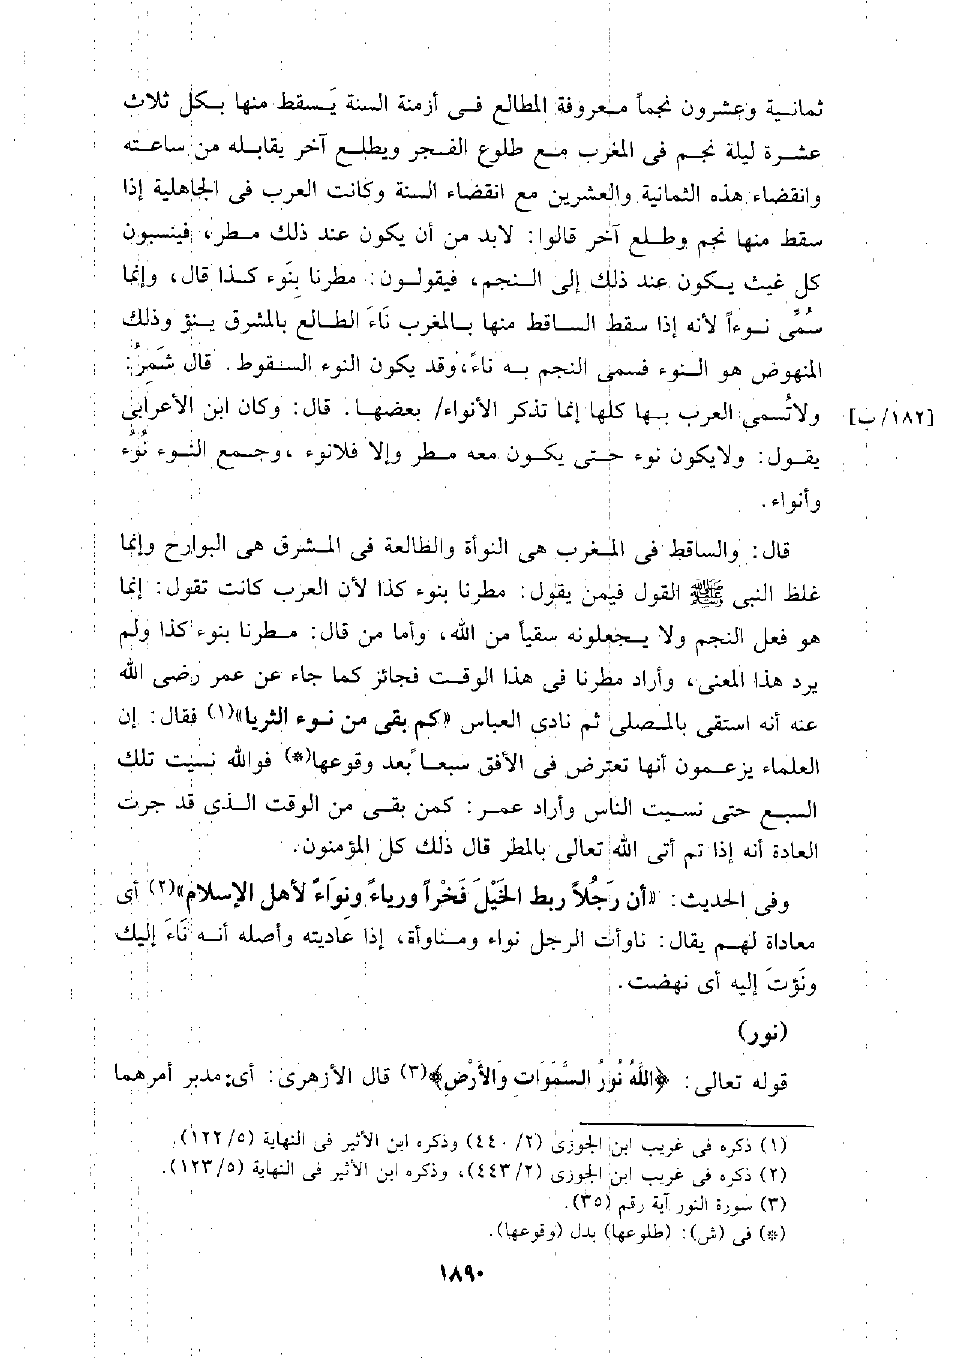 ثمانية وعشرون نجماً معروفة المطالع فى أزمنة السنة يَسقط منها بكل ثلاث
عشرة ليلة نجم فى المغرب مع طلوع الفجر ويطلع آخر يقابله من ساعته
وانقضاء هذه الثمانية والعشرين مع انقضاء السنة وكانت العرب فى الجاهلية إذا
سقط منها نجم وطلع آخر قالوا: لابد من أن يكون عند ذلك مطر، فينسبون
كل غيث يكون عند ذلك إلى النجم، فيقولون: مطرنا بِنَوء كذا قال، وإنما
سُمِّى نوءاً لأنه إذا سقط الساقط منها بالمغرب نَاءَ الطالع بالمشرق ينؤ وذلك
المنهوض هو النوء فسمى النجم به ناءً، وقد يكون النوء السقوط. قال شَمِرُ:
ولاتُسمى العرب بها كلها إنما تذكر الأنواء/ بعضها. قال: وكان ابن الأعرابى [١٨٢/ب]
يقول: ولايكون نوء حتى يكون معه مطر وإلا فلانوء، وجمع النوء نُوُء
وأنواء.
قال: والساقط فى المغرب هى النوأة والطالعة فى المشرق هى البوارح وإنما
غلظ النبى ﷺ القول فيمن يقول: مطرنا بنوء كذا لأن العرب كانت تقول: إنما
هو فعل النجم ولا يجعلونه سقياً من الله، وأما من قال: مطرنا بنوء كذا ولم
يرد هذا المعنى، وأراد مطرنا فى هذا الوقت فجائز كما جاء عن عمر رضى الله
عنه أنه استقى بالمصلى ثم نادى العباس «كم بقى من نوء الثريا»(١) فقال: إن
العلماء يزعمون أنها تعترض فى الأفق سبعاً بعد وقوعها(*) فوالله نسيت تلك
السبع حتى نسيت الناس وأراد عمر: كمن بقى من الوقت الذى قد جرت
العادة أنه إذا تم أتى الله تعالى بالمطر قال ذلك كل المؤمنون.
وفى الحديث: «أن رَجُلاً ربط الخَيْلَ فَخْراً ورياءً ونواءً لأهل الإسلام»(٢) أى
معاداة لهم يقال: ناوأت الرجل نواء ومناوأة، إذا عاديته وأصله أنه نَاءَ إليك
ونَؤتَ إليه أى نهضت.
(نور)
قوله تعالى: ﴿اللَّهُ نُورُ السَّمَوَاتِ وَالأَرْضِ﴾(٣) قال الأزهرى: أى: مدبر أمرهما
(١) ذكره فى غريب ابن الجوزى (٢/ ٤٤٠) وذكره ابن الأثير فى النهاية (٥/ ١٢٢).
(٢) ذكره فى غريب ابن الجوزى (٢/ ٤٤٣)، وذكره ابن الأثير فى النهاية (٥/ ١٢٣).
(٣) سورة النور آية رقم (٣٥).
(*) فى (ش): (طلوعها) بدل (وقوعها).
١٨٩٠